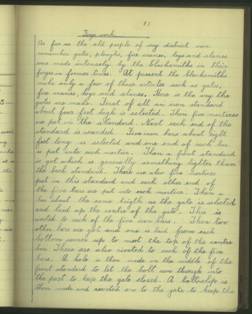 81
Forge work
As far as the old people of my district can
remember gates, ploughs, fire cranes, tongs and slanes
was made extensively by the blacksmiths in their
forges in former times. At present the blacksmiths
make only a few of these articles such as gates,
fire cranes, tongs and slanes. Here is the way the
gates are made. First of all an iron standard
about four feet high is selected. Then five mortices
are put in the standard. Next each end of the
standard is rounded. Five iron bars about eight
feet long is selected and one end of each bar
is put into each mortice. Then a front standard
is got which is generally something lighter than
the back standard. There are also five mortices
put in this standard and each other end of
the five bars are put into each mortice. Then a
bar about the same length as the gate is selected
and laid up the centre of the gate. This is
riveted to each of the five iron bars. Then two
other bars are got and one is laid from each
bottom corner up to meet the top of the centre
bar. These are also riveted to each of the five
bars. A hole is then made in the middle of the
front standard to let the bolt run through into
the post to keep the gate closed. A
then made and riveted on to the gate to keep the